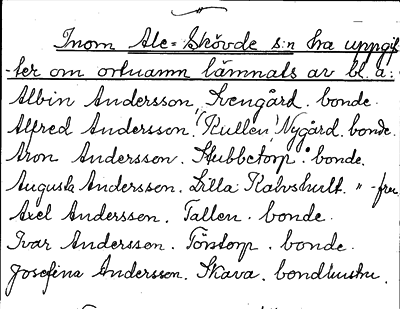 Inom Ale-Skövde s:n ha uppgif-
ter om ortnamn lämnats av bl. a.:
Albin Andersson, Svengård. bonde.
Alfred Andersson. "Rullen", Nygård. bonde.
Aron Andersson. Stubbetorp. bonde.
Augusta Andersson. Lilla Kalvshult. " -fru.
Axel Andersson. Tallen. bonde.
Ivar Andersson. Törstorp. bonde.
Josefina Andersson. Skava. bondhustru.